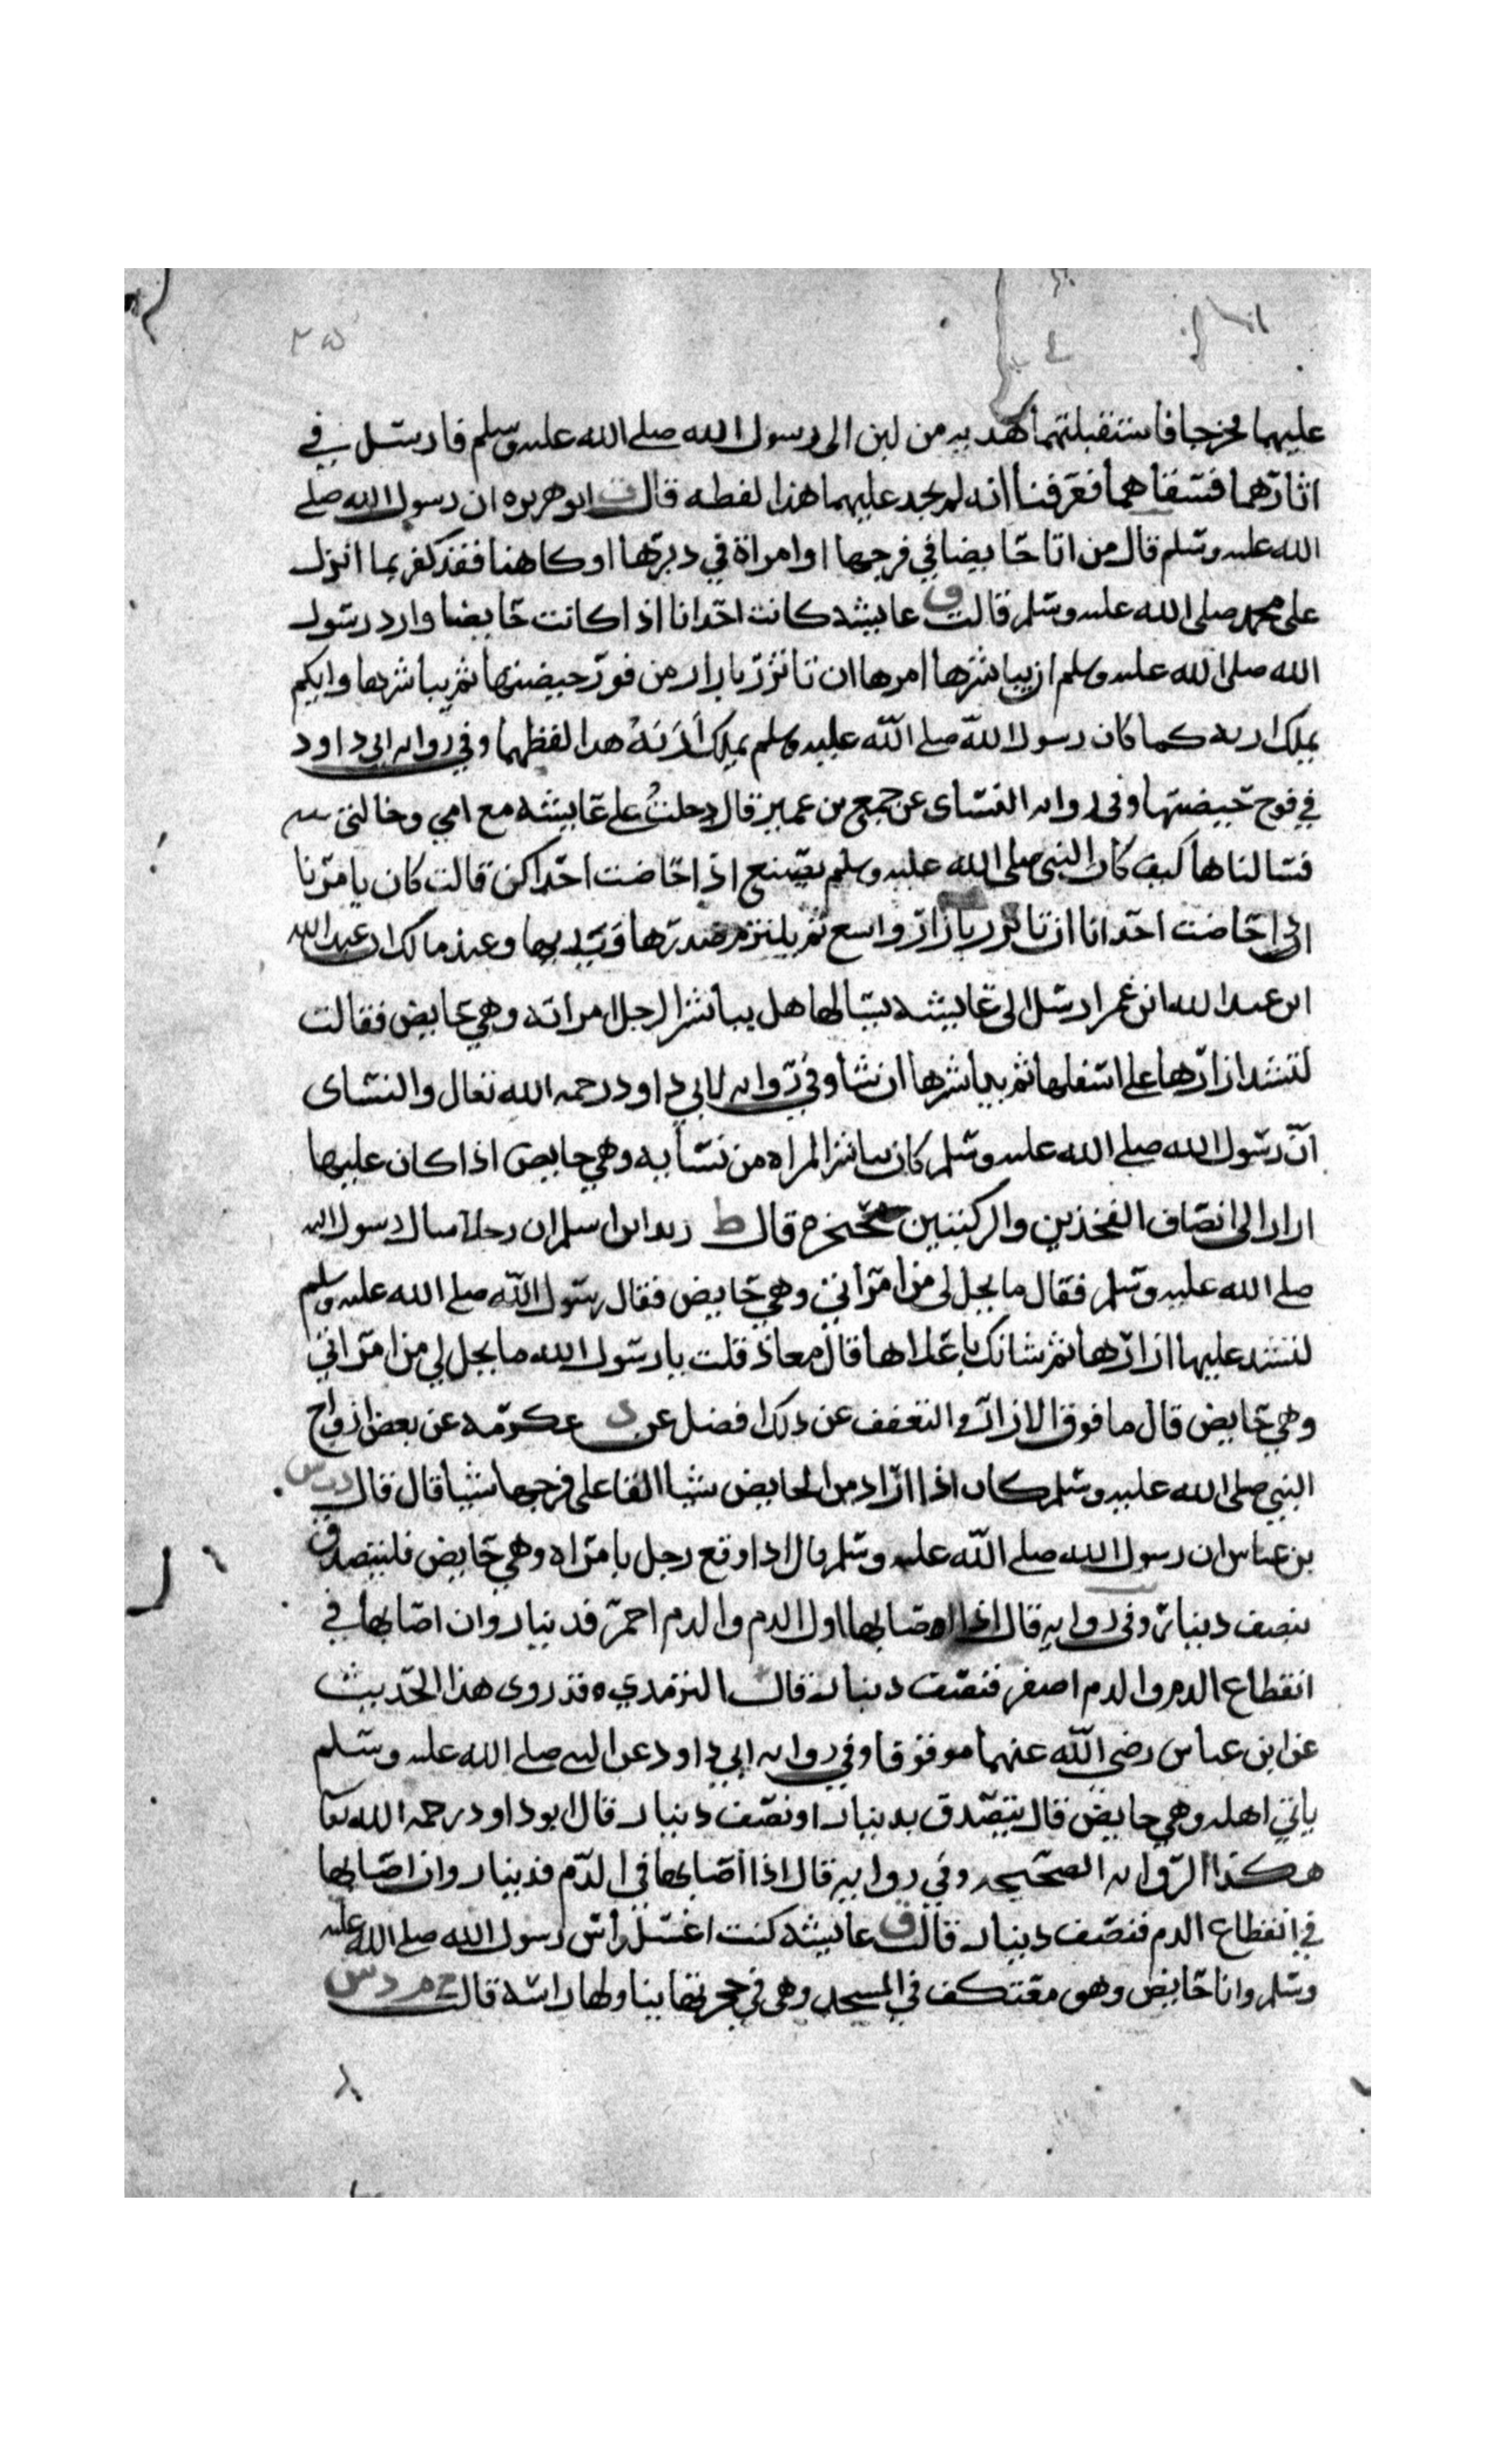 ٢٥
عليهما فخرجا فاستقبلتهما هديه من لبن الى رسول الله صلى الله عليه وسلم فارسل في
اثارهما فسقاهما فعرفنا انه لم يجد عليهما هذا لفظه قال ت ابو هريره ان رسول الله صلى
الله عليه وسلم قال من اتا حايضا في فرجها او امراة في دبرها او كاهنا فقد كفر بما انزل
على محمد صلى الله عليه وسلم قالت ق عايشه كانت احدانا اذا كانت حايضا واراد رسول
الله صلى الله عليه وسلم ان يباشرها امرها ان تاتزر بازار من فور حيضتها ثم يباشرها وايكم
يملك اربه كما كان رسول الله صلى الله عليه وسلم يملك أربَهُ هذا لفظهما وفي روايه ابي داود
في فوح حيضتها وفي روايه النساي عن جميع بن عمير قال دخلتُ على عايشه مع امي وخالتي
فسالناها كيف كان النبي صلى الله عليه وسلم يصنع اذا حاضت احداكن قالت كان يامرنا
اذا حاضت احدانا ان تاتزر بازار واسع ثم يلتزم صدرها وثدييها وعند مالك ان عبد الله
ابن عبد الله ابن عمر ارسل الى عايشه يسالها هل يباشر الرجل امراته وهي حايض فقالت
لتشد ازارها على اسفلها ثم يباشرها ان شا وفي روايه لابي داود رحمه الله تعال والنساى
انّ رسول الله صلى الله عليه وسلم كان يباشر المراه من نسايه وهي حايض اذا كان عليها
ازار الى انصاف الفخذين والركبتين محتجزه قال ط زيد ابن اسلم ان رجلا سال رسول الله
صلى الله عليه وسلم فقال ما يحل لي من امراتي وهي حايض فقال رسول الله صلى الله عليه وسلم
لتشد عليها ازارها ثم شانك باعلاها قال معاذ قلت يا رسول الله ما يحل لي من امراتي
وهي حايض قال ما فوق الازار والتعفف عن ذلك افضل عن د عكرمه عن بعض ازواج
النبي صلى الله عليه وسلم كان اذا اراد من الحايض شيا القا على فرجها شيا قال قال د ت س
بن عباس ان رسول الله صلى الله عليه وسلم قال اذا وقع رجل بامراه وهي حايض فليتصدق
بنصف دينار وفي روايه قال اذا اصابها اول الدم والدم احمر فدينار وان اصابها في
انقطاع الدم والدم اصفر فنصف دينار قال الترمدي وقد روى هذا الحديث
عن ابن عباس رضي الله عنهما موقوفا وفي روايه ابي داود عن النبي صلى الله عليه وسلم
ياتي اهله وهي حايض قال يتصدق بدينار او نصف دينار قال ابو داود رحمه الله تعا
هكذا الروايه الصحيحه وفي روايه قال اذا اصابها في الدم فدينار وان اصابها
في انقطاع الدم فنصف دينار قالت ق عايشه كنت اغسل راس رسول الله صلى الله عليه
وسلم وانا حايض وهو معتكف في المسجد وهي في حجرتها يناولها راسه قالت م د س